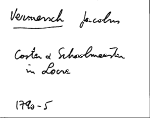 Vermersch Jacobus
Coster & Schoolmeester
in Locre
1790-5